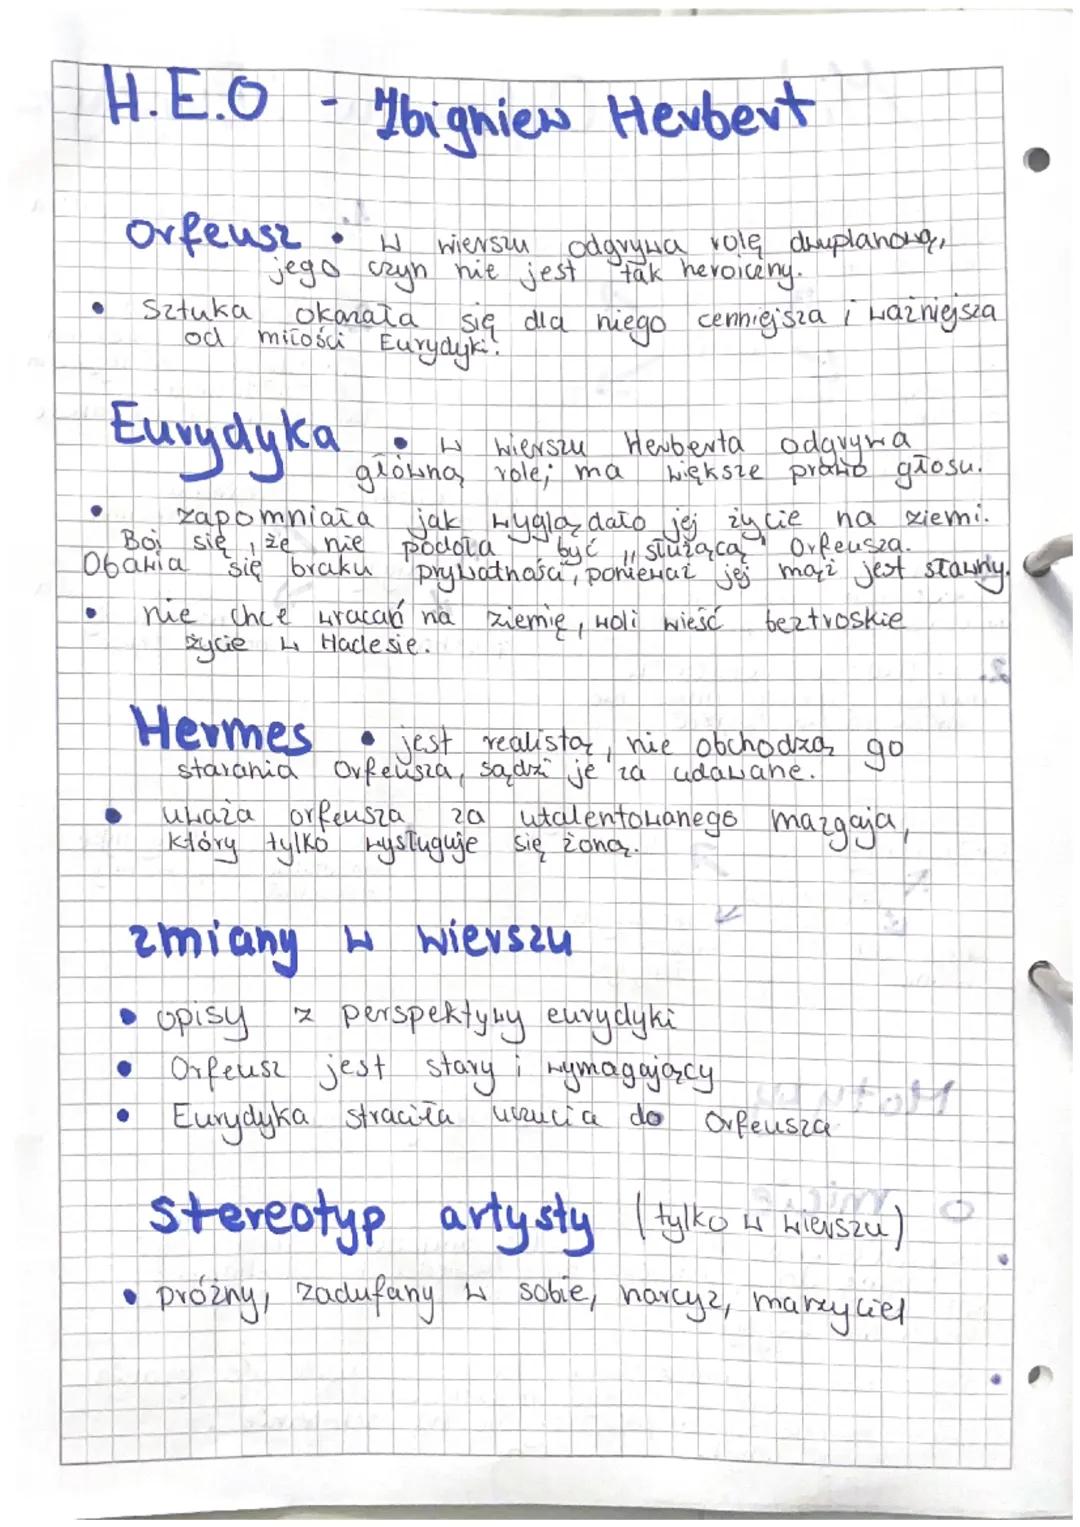 H.E.O - Zbigniew Herbert
Orfeusz • w wierszu odgrywa rolę dwuplanową,
jego czyn nie jest tak heroiczny.
• Sztuka okazała się dla niego cenniejsza i ważniejsza
od miłości Eurydyki.
Eurydyka • w wierszu Herberta odgrywa
główną rolę; ma większe prawo głosu.
• zapomniała jak wyglądało jej życie na ziemi.
Boi się, że nie podoła być „służącą" Orfeusza.
Obawia się braku prywatności, ponieważ jej mąż jest sławny.
• nie chce wracać na ziemię, woli wieść beztroskie
życie w Hadesie.
Hermes • jest realistą, nie obchodzą go
starania Orfeusza, sądzi je za udawane.
• uważa orfeusza za utalentowanego mazgaja,
który tylko wysługuje się żoną.
zmiany w wierszu
• opisy z perspektywy eurydyki
• Orfeusz jest stary i wymagający
• Eurydyka straciła uczucia do Orfeusza
stereotyp artysty (tylko w wierszu)
• próżny, zadufany w sobie, narcyz, marzyciel